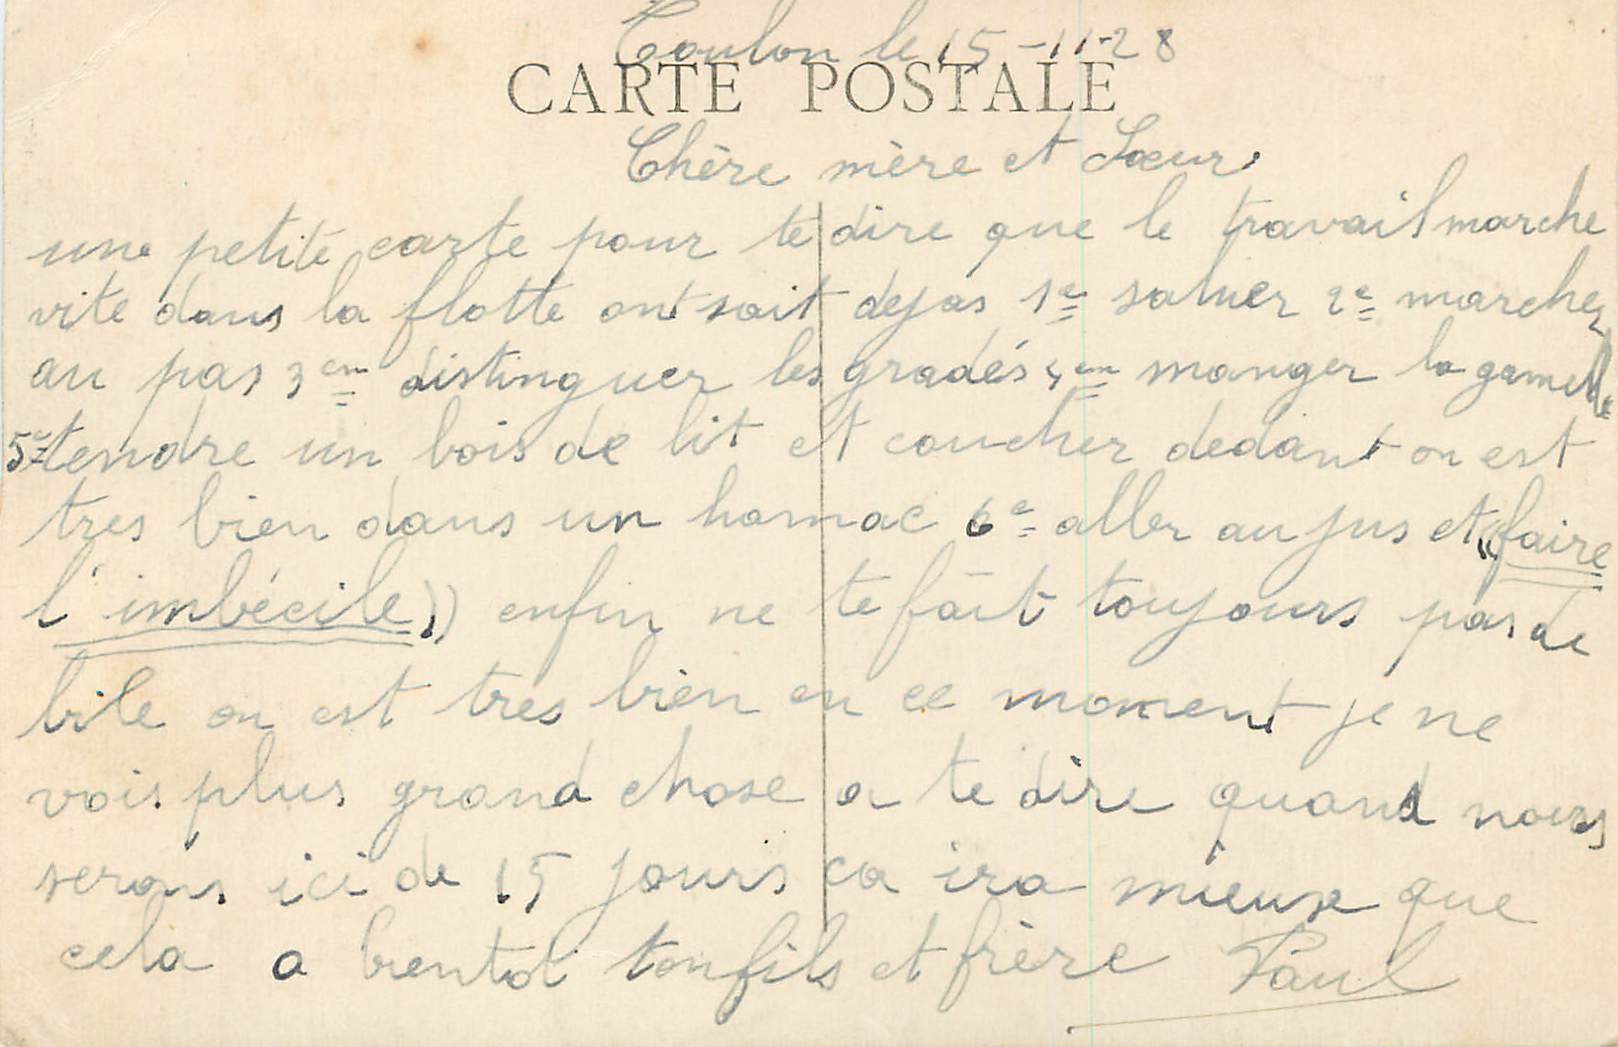 Toulon le 15-11-28
CARTE POSTALE
Chère mère et Sœur.
une petite carte pour te dire que le travail marche
vite dans la flotte ont sait dejas 1e saluer 2e marcher
au pas 3em distinguer les gradés 4em manger la gamelle
5e tendre un bois de lit et coucher dedant on est
tres bien dans un hamac 6e aller au jus et ((faire
l'imbécile)) enfin ne te fait toujours pas de
bile on est tres bien en ce moment je ne
vois plus grand chose a te dire quand nous
serons ici de 15 jours ca ira mieux que
cela a bientot ton fils et frère Paul